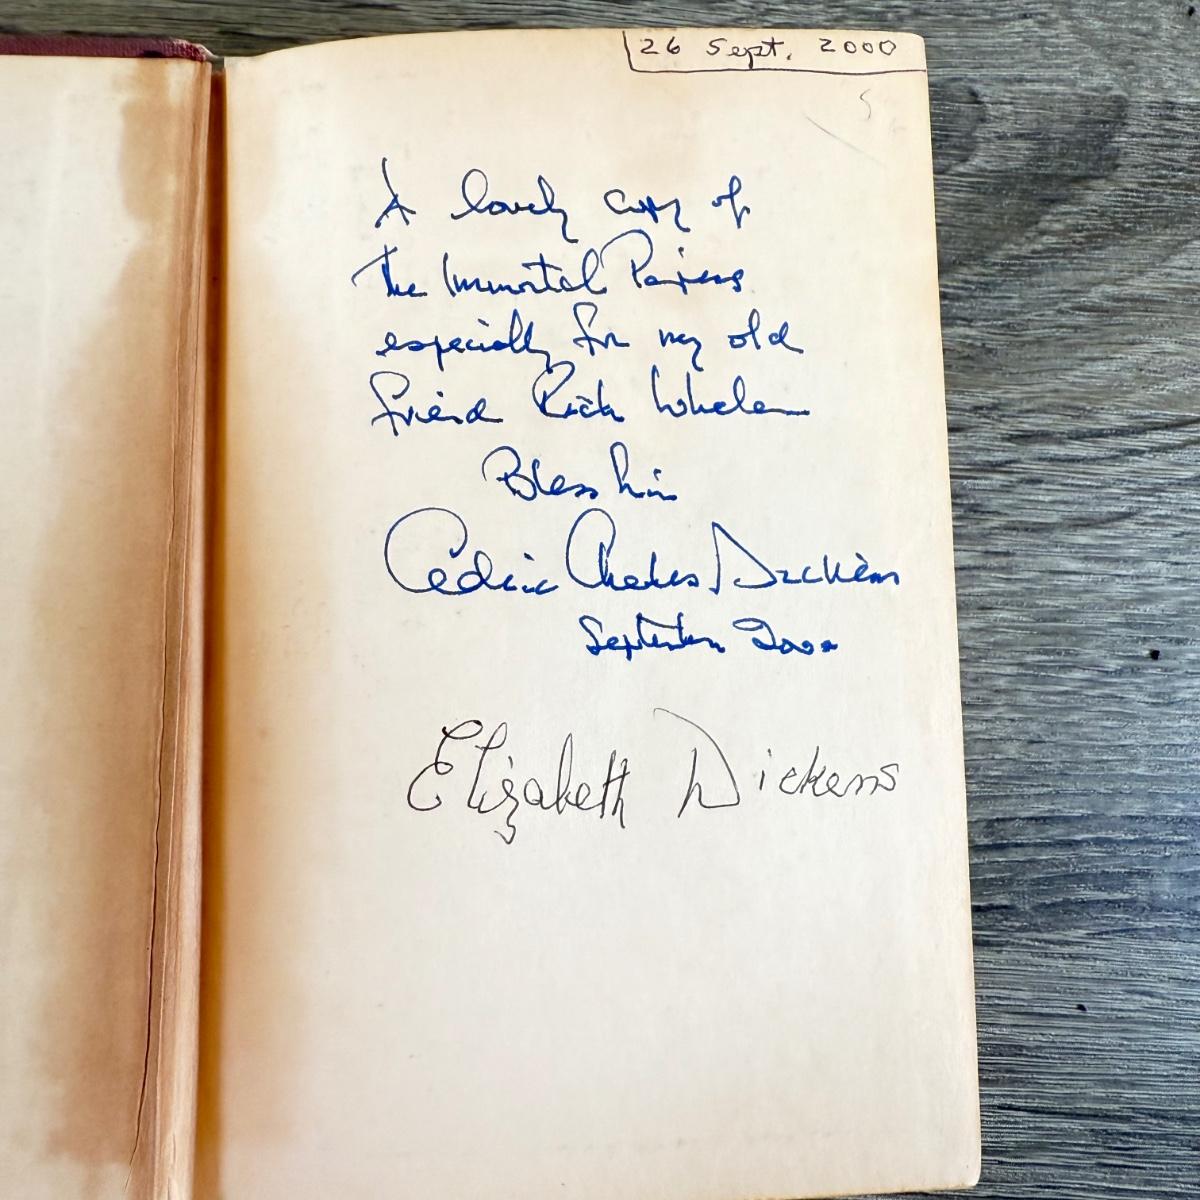 26 Sept. 2000
A lovely copy of
The Immortal
especially for my old
friend Rick Whelan
Bless him
Cedric Charles Dickens
September 2000
Elizabeth Dickens